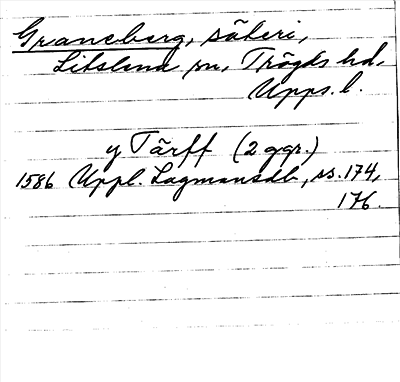 Graneberg, säteri,
Litslena sn, Trögds hd,
Upps. l.
y Tärff (2 ggr.)
1586 Uppl. Lagmansdb, ss. 174,
176.